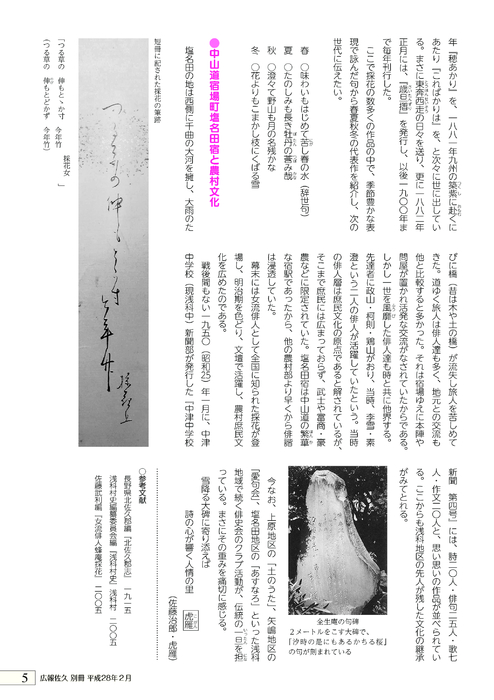 年『穂あかり』を、一八八一年九州の築紫に赴くに
あたり『こればかりは』を、と次々に世に出してい
る。まさに東奔西走の日々を送り、更に一八八二年
正月には、『歳旦摺』を発行し、以後一九〇〇年ま
で毎年刊行した。
ここで採花の数多くの作品の中で、季節豊かな表
現で詠んだ句から春夏秋冬の代表作を紹介し、次の
世代に伝えたい。
春　○味わいもはじめて苦し春の水（辞世句）
夏　○たのしみも長き牡丹の莟み哉
秋　○澄々て野山も月の名残かな
冬　○花よりもこまかし枝にくばる雪
●中山道宿場町塩名田宿と農村文化
塩名田の地は西側に千曲の大河を擁し、大雨のた
びに橋（昔は木や土の橋）が流失し旅人を苦しめて
きた。道ゆく旅人は俳人達も多く、地元との交流も
他と比較すると多かった。それは宿場ゆえに本陣や
問屋が置かれ活発な交流がなされていたからである。
しかし一世を風靡した俳人達も時と共に他界する。
先達者に政山・柯則・鶏山がおり、当時、李雪・素
澄という二人の俳人が活躍していたという。当時
の俳人層は庶民文化の原点であると解されているが、
そこまで庶民には広まっておらず、武士や富商・豪
農などに限定されていた。塩名田宿は中山道の繁華
な宿駅であったから、他の農村部より早くから俳諧
は浸透していた。
幕末には女流俳人として全国に知られた採花が登
場し、明治期を色どり、文壇で活躍し、農村庶民文
化を広めたのである。
戦後間もない一九五〇（昭和25）年一月に、中津
中学校（現浅科中）新聞部が発行した『中津中学校
新聞　第四号』には、詩一〇人・俳句二五人・歌七
人・作文二〇人と、思い思いの作品が並べられてい
る。ここからも浅科地区の先人が残した文化の継承
がみてとれる。
今なお、上原地区の「土のうた」、矢嶋地区の
「愛句会」、塩名田地区の「あすなろ」といった浅科
地域で続く俳史会のクラブ活動が、伝統の一旦を担
っている。まさにその重みを痛切に感じる。
雪降る大碑に寄り添えば
詩の心が響く人情の里
虎雁
（佐藤治郎・虎雁）
○参考文献
長野県北佐久郡編『北佐久郡志』一九一五
浅科村史編纂委員会編『浅科村史』浅科村　二〇〇五
佐藤武利編『女流俳人蜂庵採花』二〇〇五
短冊に記された採花の筆跡
「つる草の　伸もとゝか寸　今年竹　採花女　」
（つる草の　伸もとどかず　今年竹）
全生庵の句碑
２メートルをこす大碑で、
『汐時の是にもあるかちる桜』
の句が刻まれている
5　広報佐久 別冊 平成28年２月